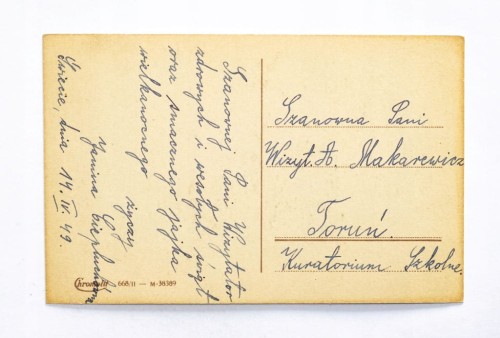 Szanownej Pani Wizytator
zdrowych i wesołych świąt
oraz smacznego jajka
wielkanocnego
życzy
Janina
Świecie, dnia 14.IV.49.
Chromolit 668/II — M-38389
Szanowna Pani
Wizyt. A. Makarewicz
Toruń.
Kuratorium Szkolne.